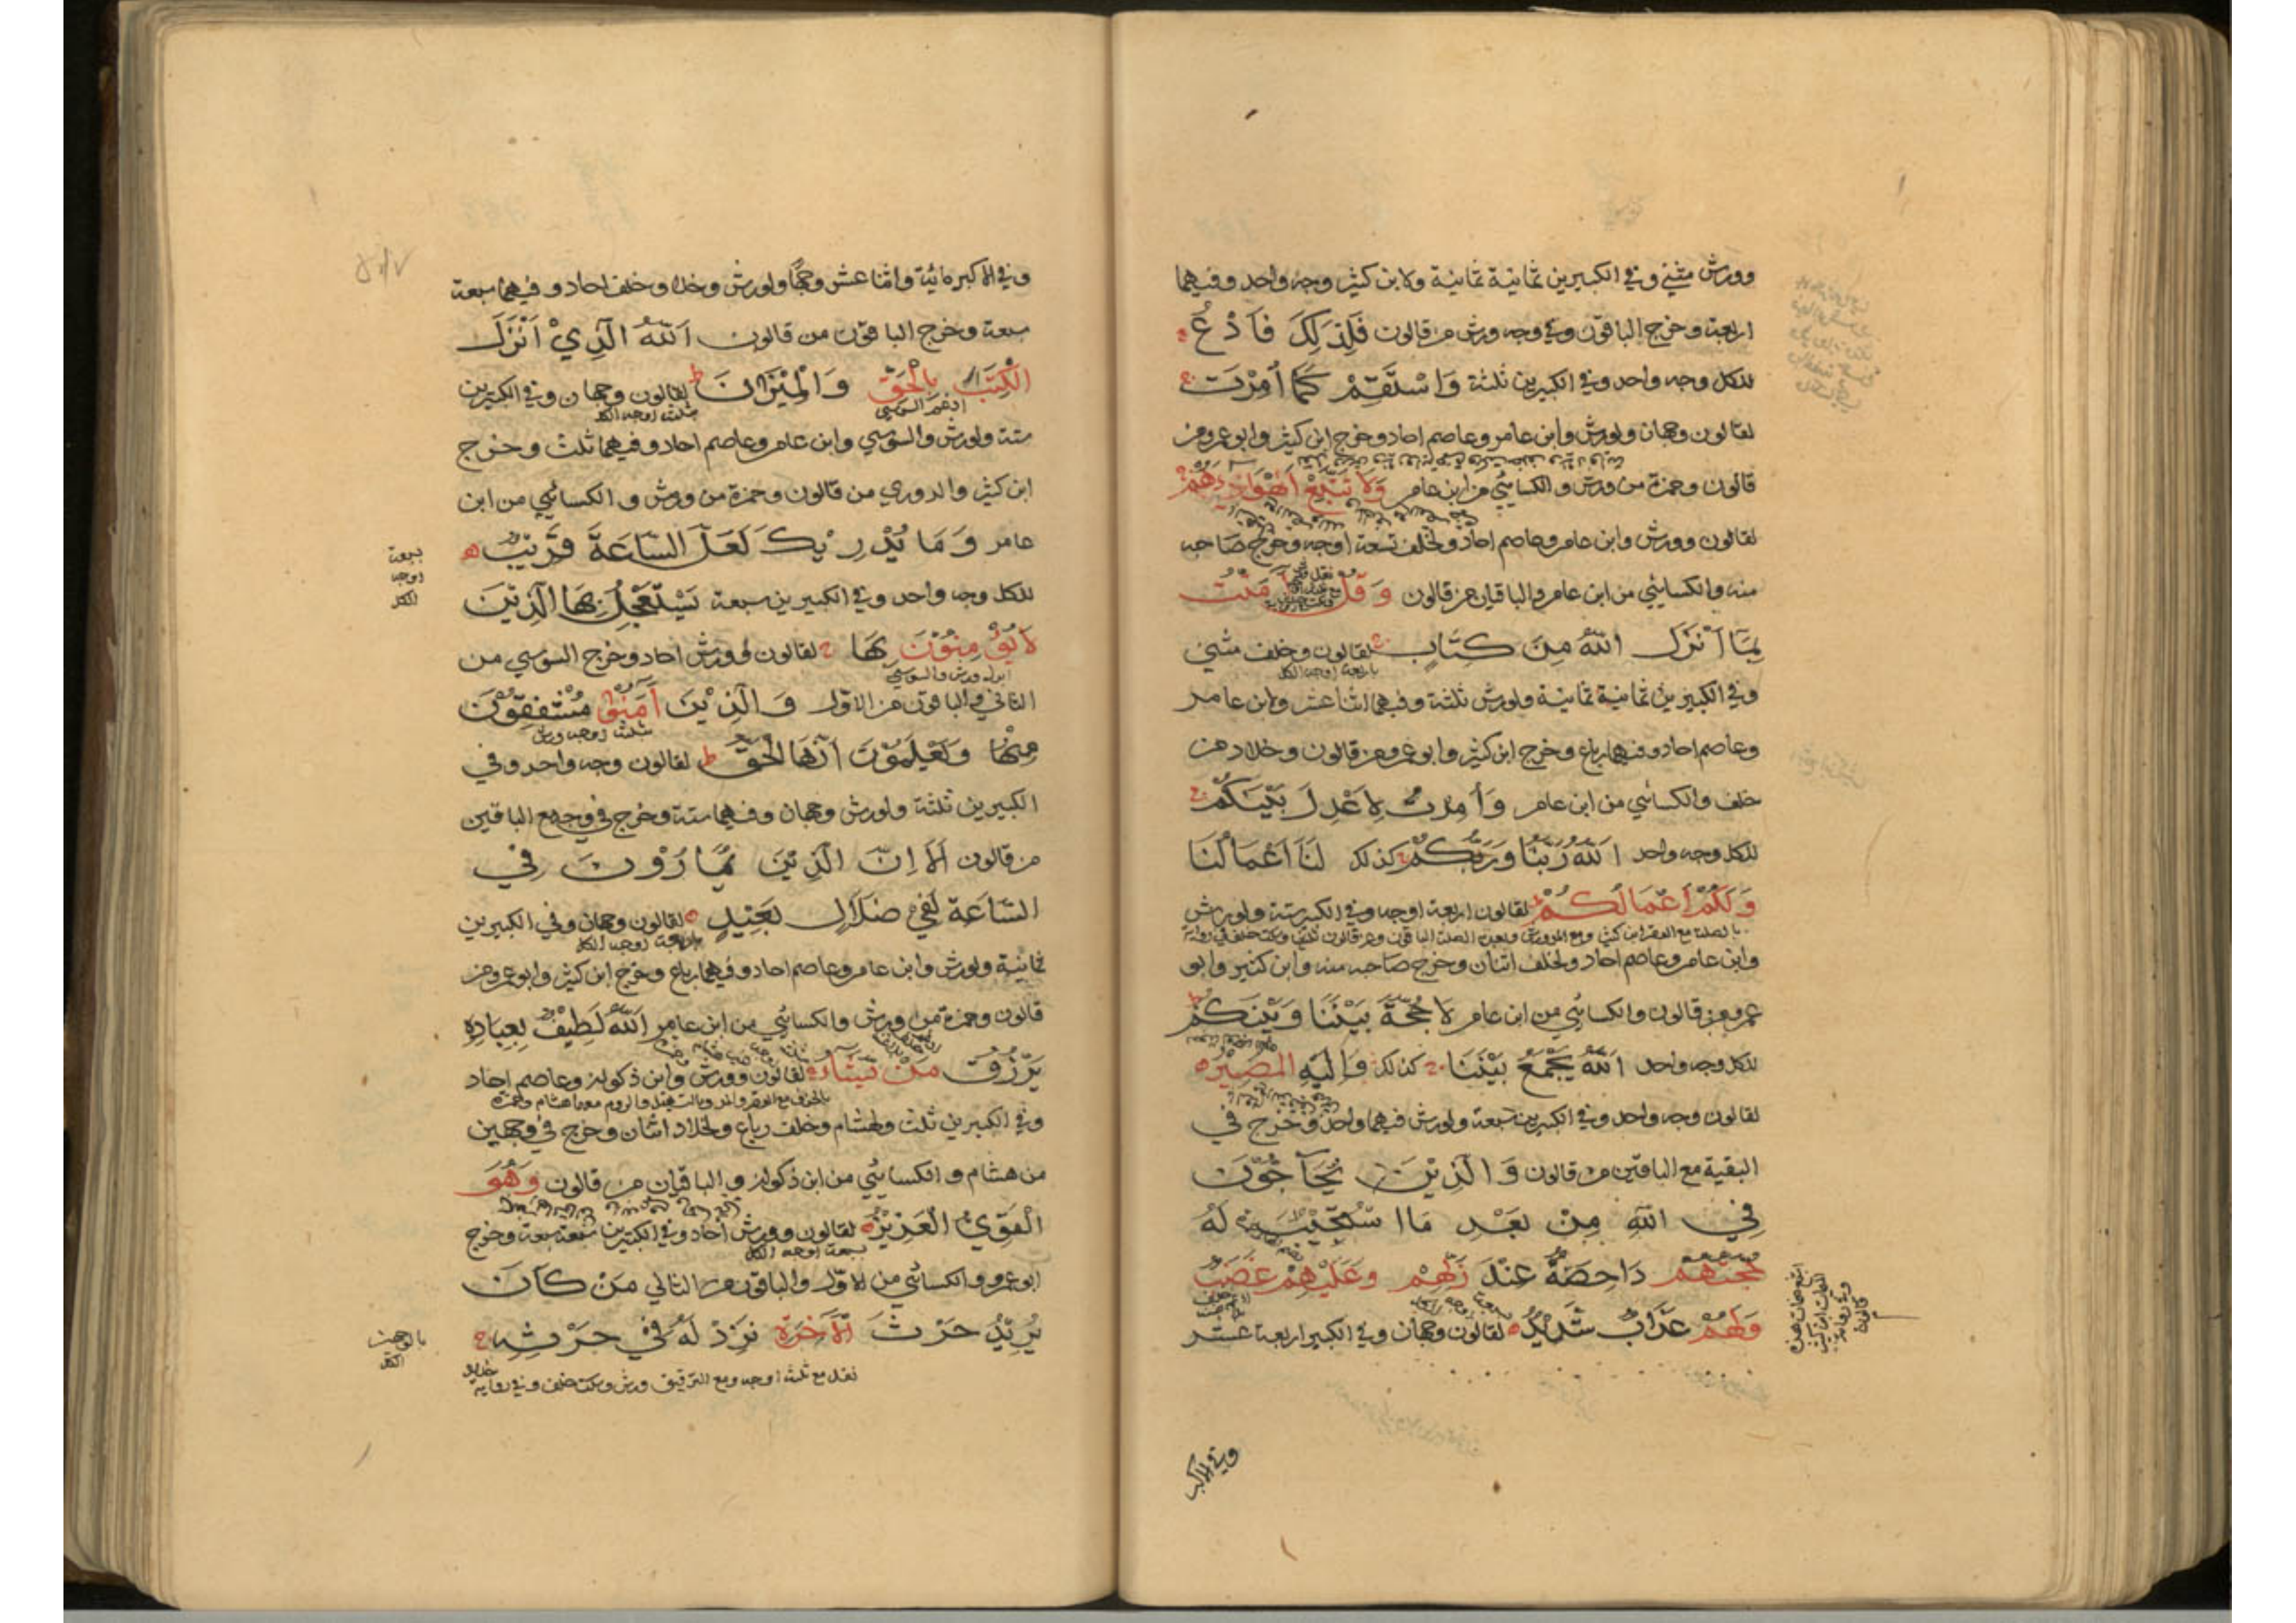 وورش مثنى وفي الكبيرين ثمانية ثمانية ولابن كثير وجه واحد وفيهما
اربعة وخرج الباقون وفي وجه ورش من قالون فَلِذَلِكَ فَادْعُ
للكل وجه واحد وفي الكبيرين ثلثة وَاسْتَقِمْ كَمَا أُمِرْتَ
لقالون وجهان ولورش وابن عامر وعاصم احاد وخرج ابن كثير وابو عمرو من
قالون وحمزة من ورش والكسائي من ابن عامر وَلَا تَتَّبِعْ أَهْوَاءَهُمْ
لقالون وورش وابن عامر وعاصم احاد ولخلف تسعة اوجه وخرج صاحبه
منه والكسائي من ابن عامر والباقيان من قالون وَقُلْ آمَنْتُ
بِمَا أَنْزَلَ اللَّهُ مِنْ كِتَابٍ لقالون وخلف مثنى
باربعة اوجه الكل
وفي الكبيرين ثمانية ثمانية ولورش ثلثة وفيهما اثنا عشر ولابن عامر
وعاصم احاد وفيهما رباع وخرج ابن كثير وابو عمرو من قالون وخلاد من
خلف والكسائي من ابن عامر وَأُمِرْتُ لِأَعْدِلَ بَيْنَكُمْ
للكل وجه واحد اللَّهُ رَبُّنَا وَرَبُّكُمْ كذلك لَنَا أَعْمَالُنَا
وَلَكُمْ أَعْمَالُكُمْ لقالون اربعة اوجه وفي الكبير ستة ولورش
وابن عامر وعاصم احاد ولخلف اثنان وخرج صاحبه منه وابن كثير وابو
عمرو من قالون والكسائي من ابن عامر لَا حُجَّةَ بَيْنَنَا وَبَيْنَكُمْ
للكل وجه واحد اللَّهُ يَجْمَعُ بَيْنَنَا كذلك وَإِلَيْهِ الْمَصِيرُ
لقالون وجه واحد وفي الكبيرين سبعة ولورش فيهما واحد وخرج في
البقية مع الباقين من قالون وَالَّذِينَ يُحَاجُّونَ
فِي اللَّهِ مِنْ بَعْدِ مَا اسْتُجِيبَ لَهُ
حُجَّتُهُمْ دَاحِضَةٌ عِنْدَ رَبِّهِمْ وَعَلَيْهِمْ غَضَبٌ
وَلَهُمْ عَذَابٌ شَدِيدٌ لقالون وجهان وفي الكبير اربعة عشر
وفي الاكبر
وفي الاكبر مائية واثنا عشر وجها ولورش وخلاد وخلف احاد وفيهما سبعة
سبعة وخرج الباقون من قالون اَللَّهُ الَّذِيْ اَنْزَلَ
الْكِتَبَ بِالْحَقِّ وَالْمِيْزَانَ لقالون وجهان وفي الكبيرين
ادغم السوسي
بثلثة اوجه الكل
ستة ولورش والسوسي وابن عامر وعاصم احاد وفيهما ثلث وخرج
ابن كثير والدوري من قالون وحمزة من ورش والكسائي من ابن
عامر وَمَا يُدْرِيْكَ لَعَلَّ السَّاعَةَ قَرِيْبٌ
بسبعة
اوجه
الكل
للكل وجه واحد وفي الكبيرين سبعة يَسْتَعْجِلُ بِهَا الَّذِيْنَ
لَا يُؤْمِنُوْنَ بِهَا لقالون وورش احاد وخرج السوسي من
ابدل ورش والسوسي
الثاني والباقون من الاول وَالَّذِيْنَ آمَنُوْا مُشْفِقُوْنَ
بثلثة اوجه ورش
مِنْهَا وَيَعْلَمُوْنَ اَنَّهَا الْحَقُّ لقالون وجه واحد وفي
الكبيرين ثلثة ولورش وجهان وفيهما ستة وخرج في وجه مع الباقين
من قالون اَلَا اِنَّ الَّذِيْنَ يُمَارُوْنَ فِي
السَّاعَةِ لَفِيْ ضَلَالٍ بَعِيْدٍ لقالون وجهان وفي الكبيرين
باربعة اوجه الكل
ثمانية ولورش وابن عامر وعاصم احاد وفيهما رباع وخرج ابن كثير وابو عمرو من
قالون وحمزة من ورش والكسائي من ابن عامر اَللَّهُ لَطِيْفٌ بِعِبَادِهِ
يَرْزُقُ مَنْ يَشَاءُ لقالون وورش وابن ذكوان وعاصم احاد
وفي الكبيرين ثلث ولهشام وخلف رباع ولخلاد اثنان وخرج في وجهين
من هشام والكسائي من ابن ذكوان والباقيان من قالون وَهُوَ
الْقَوِيُّ الْعَزِيْزُ لقالون وورش احاد وفي الكبيرين سبعة سبعة وخرج
بسبعة اوجه الكل
ابو عمرو والكسائي من الاول والباقون من الثاني مَنْ كَانَ
يُرِيْدُ حَرْثَ الْاٰخِرَةِ نَزِدْ لَهُ فِيْ حَرْثِهِ
نقل مع ثلثة اوجه ومع الترقيق ورش وسكت خلف وفي رواية خلاد